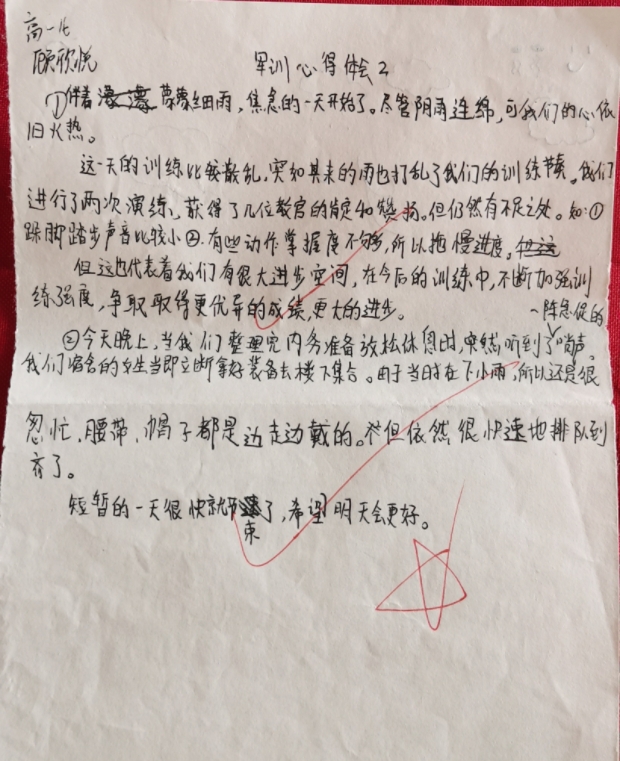 高一化
顾欣悦
军训心得体会2
①伴着蒙蒙细雨，焦急的一天开始了。尽管阴雨连绵，可我们的心依
旧火热。
这一天的训练比较散乱，突如其来的雨也打乱了我们的训练节奏。我们
进行了两次演练，获得了几位教官的肯定和赞扬。但仍然有不足之处。如:①
跺脚踏步声音比较小②.有些动作掌握度不够，所以拖慢进度。
但这也代表着我们有很大进步空间，在今后的训练中，不断加强训
练强度，争取取得更优异的成绩，更大的进步。
一阵急促的
②今天晚上，当我们整理完内务准备放松休息时，突然听到了哨声。
我们宿舍的女生当即立断拿好装备去楼下集合。由于当时在下小雨，所以还是很
匆忙，腰带、帽子都是边走边戴的。但依然很快速地排队到
齐了。
短暂的一天很快就结束了，希望明天会更好。